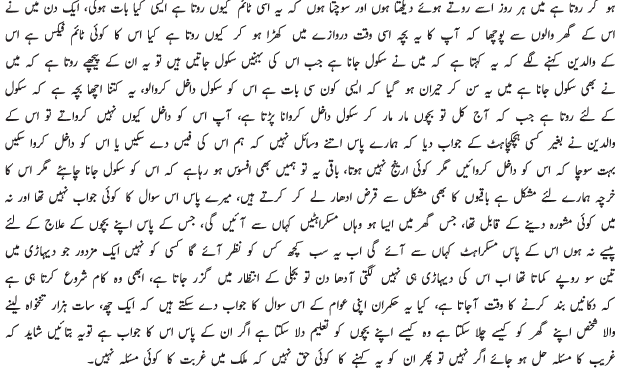 ہو کر روتا ہے میں ہر روز اسے روتے ہوئے دیکھتا ہوں اور سوچتا ہوں کہ یہ اسی ٹائم کیوں روتا ہے ایسی کیا بات ہوگی، ایک دن میں نے
اس کے گھر والوں سے پوچھا کہ آپ کا یہ بچہ اسی وقت دروازے میں کھڑا ہو کر کیوں روتا ہے کیا اس کا کوئی ٹائم فیکس ہے اس
کے والدین کہنے لگے کہ یہ کہتا ہے کہ میں نے سکول جانا ہے جب اس کی بہنیں سکول جاتیں ہیں تو یہ ان کے پیچھے روتا ہے کہ میں
نے بھی سکول جانا ہے میں یہ سن کر حیران ہو گیا کہ ایسی کون سی بات ہے اس کو سکول داخل کروالو، یہ کتنا اچھا بچہ ہے کہ سکول
کے لئے روتا ہے جب کہ آج کل تو بچوں مار مار کر سکول داخل کروانا پڑتا ہے، آپ اس کو داخل کیوں نہیں کرواتے تو اس کے
والدین نے بغیر کسی ہچکچاہٹ کے جواب دیا کہ ہمارے پاس اتنے وسائل نہیں کہ ہم اس کی فیس دے سکیں یا اس کو داخل کروا سکیں
بہت سوچا کہ اس کو داخل کروائیں مگر کوئی اریج نہیں ہوتا، باقی یہ تو ہمیں بھی افسوس ہو رہاہے کہ اس کو سکول جانا چاہئے مگر اس کا
خرچہ ہمارے لئے مشکل ہے باقیوں کا بھی مشکل سے قرض ادھار لے کر کرتے ہیں، میرے پاس اس سوال کا کوئی جواب نہیں تھا اور نہ
میں کوئی مشورہ دینے کے قابل تھا، جس گھر میں ایسا ہو وہاں مسکراہٹیں کہاں سے آئیں گی، جس کے پاس اپنے بچوں کے علاج کے لئے
پیسے نہ ہوں اس کے پاس مسکراہٹ کہاں سے آئے گی اب یہ سب کچھ کس کو نظر آئے گا کسی کو نہیں ایک مزدور جو دیہاڑی میں
تین سو روپے کماتا تھا اب اس کی دیہاڑی ہی نہیں لگتی آدھا دن تو بجلی کے انتظار میں گزر جاتا ہے، ابھی وہ کام شروع کرتا ہی ہے
کہ دکانیں بند کرنے کا وقت آجاتا ہے، کیا یہ حکمران اپنی عوام کے اس سوال کا جواب دے سکتے ہیں کہ ایک چھ، سات ہزار تنخواہ لینے
والا شخص اپنے گھر کو کیسے چلا سکتا ہے وہ کیسے اپنے بچوں کو تعلیم دلا سکتا ہے اگر ان کے پاس اس کا جواب ہے تویہ بتائیں شاید کہ
غریب کا مسئلہ حل ہو جائے اگر نہیں تو پھر ان کو یہ کہنے کا کوئی حق نہیں کہ ملک میں غربت کا کوئی مسئلہ نہیں۔